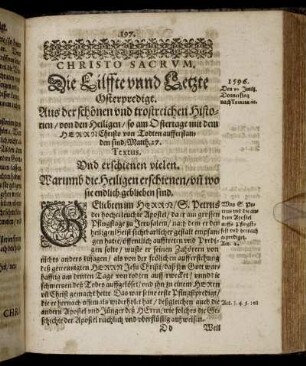 197.
CHRISTO SACRVM.
Die Eilffte vnnd Letzte
Osterpredigt.
Aus der schönen vnd trostreichen Histo-
rien / von den Heiligen / so am Ostertage mit dem
HERRN Christo von Todten aufferstan-
den sind / Matth. 27.
Textus.
Vnd erschienen vielen.
Warumb die Heiligen erschienen / vñ wo
sie endlich geblieben sind.
GEliebten im HERRN / S. Petrus
der hocherleuchte Apostel / da er am ersten
Pfingstage zu Jerusalem / nach dem er den
heiligen Geist sichtbarlicher gestalt empfan-
gen hatte / öffentlich aufftreten vnd Predi-
gen solte / wuste er seinen Zuhörern von
nichts anders zusagen / als von der frölichen aufferstehung
des gecreutzigten HERRN Jesu Christi / das jhn Gott war-
hafftig am dritten Tage von todten aufferweckt /
schmertzen des Todes auffgelöset / vnd jhn zu einem HErrn
vñ Christ gemacht hette. Das war seine erste Pfingstpredigt /
die er hernach offten als wiederholet hat / deßgleichen auch die
andern Apostel vnd Jünger deß HErrn / wie solches die Ge-
schichte der Apostel reichlich vnd vberflüssig außweisen.
Dd Weil
1596.
Den Junij,
Donnerstag
nach
Was S. Pe-
trus vnd die an-
dern Apostel
am Pfingst-
fest vnd hernach
geprediget.
Act. 2.